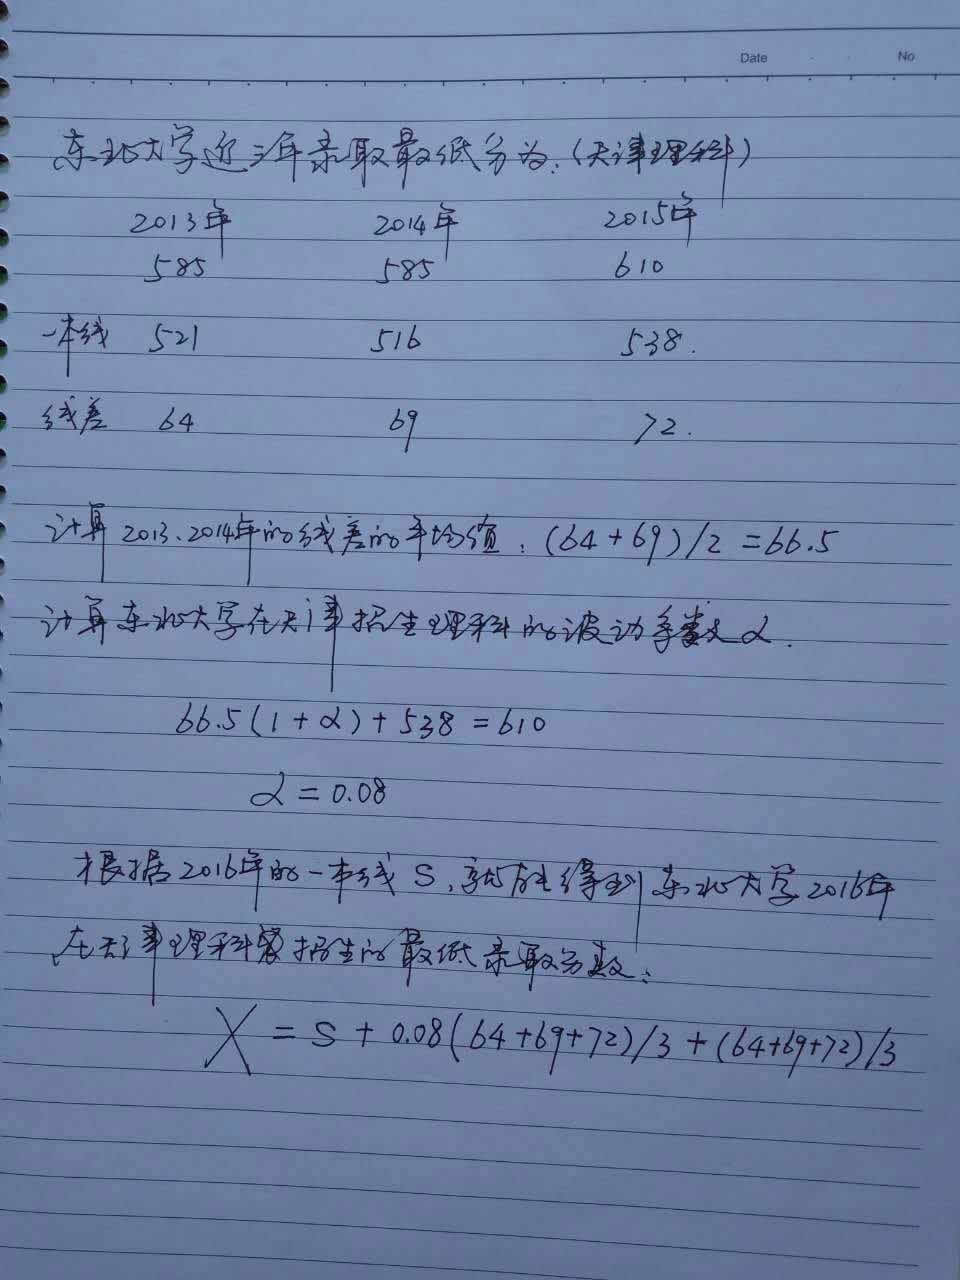 Date No
东北大学近三年录取最低分为:(天津理科)
2013年 2014年 2015年
585 585 610
一本线 521 516 538.
线差 64 69 72.
计算2013、2014年的线差的平均值:(64+69)/2=66.5
计算东北大学在天津招生理科的波动系数α.
66.5(1+α)+538=610
α=0.08
根据2016年的一本线S,就能得到东北大学2016年
在天津理科招生的最低录取分数:
X=S+0.08(64+69+72)/3+(64+69+72)/3